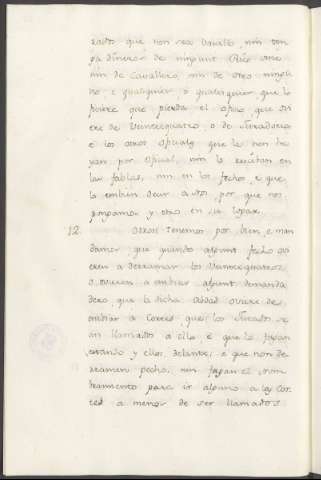 rado que non sea Vasallo, nin ten
ga dineros de ningunt Rico ome
nin de Cavallero, nin de otro ningu
no e qualquier, o qualesquier que lo
ficiere que pierda el oficio que ovi
ere de Veinticuatro, o de Juraderia
e los otros oficiales que lo non ha
yan por oficial, nin lo reciban en
las fablas, nin en los fechos, e que
lo embien decir a Nos, por que nos
pongamos y otro en su logar.
12. Otrosi tenemos por bien, e man
damos que quando algunt fecho ovi
eren a derramar los Veinticuatros
o ovieren a embiar algunt demanda
dero, que la dicha Cibdad oviere de
embiar a Cortes, que los Jurados se
an llamados a ello e que lo fagan
estando y ellos delante, e que non de
rramen pecho, nin fagan el non
bramiento para ir alguno a las Cor
tes a menos de ser llamados